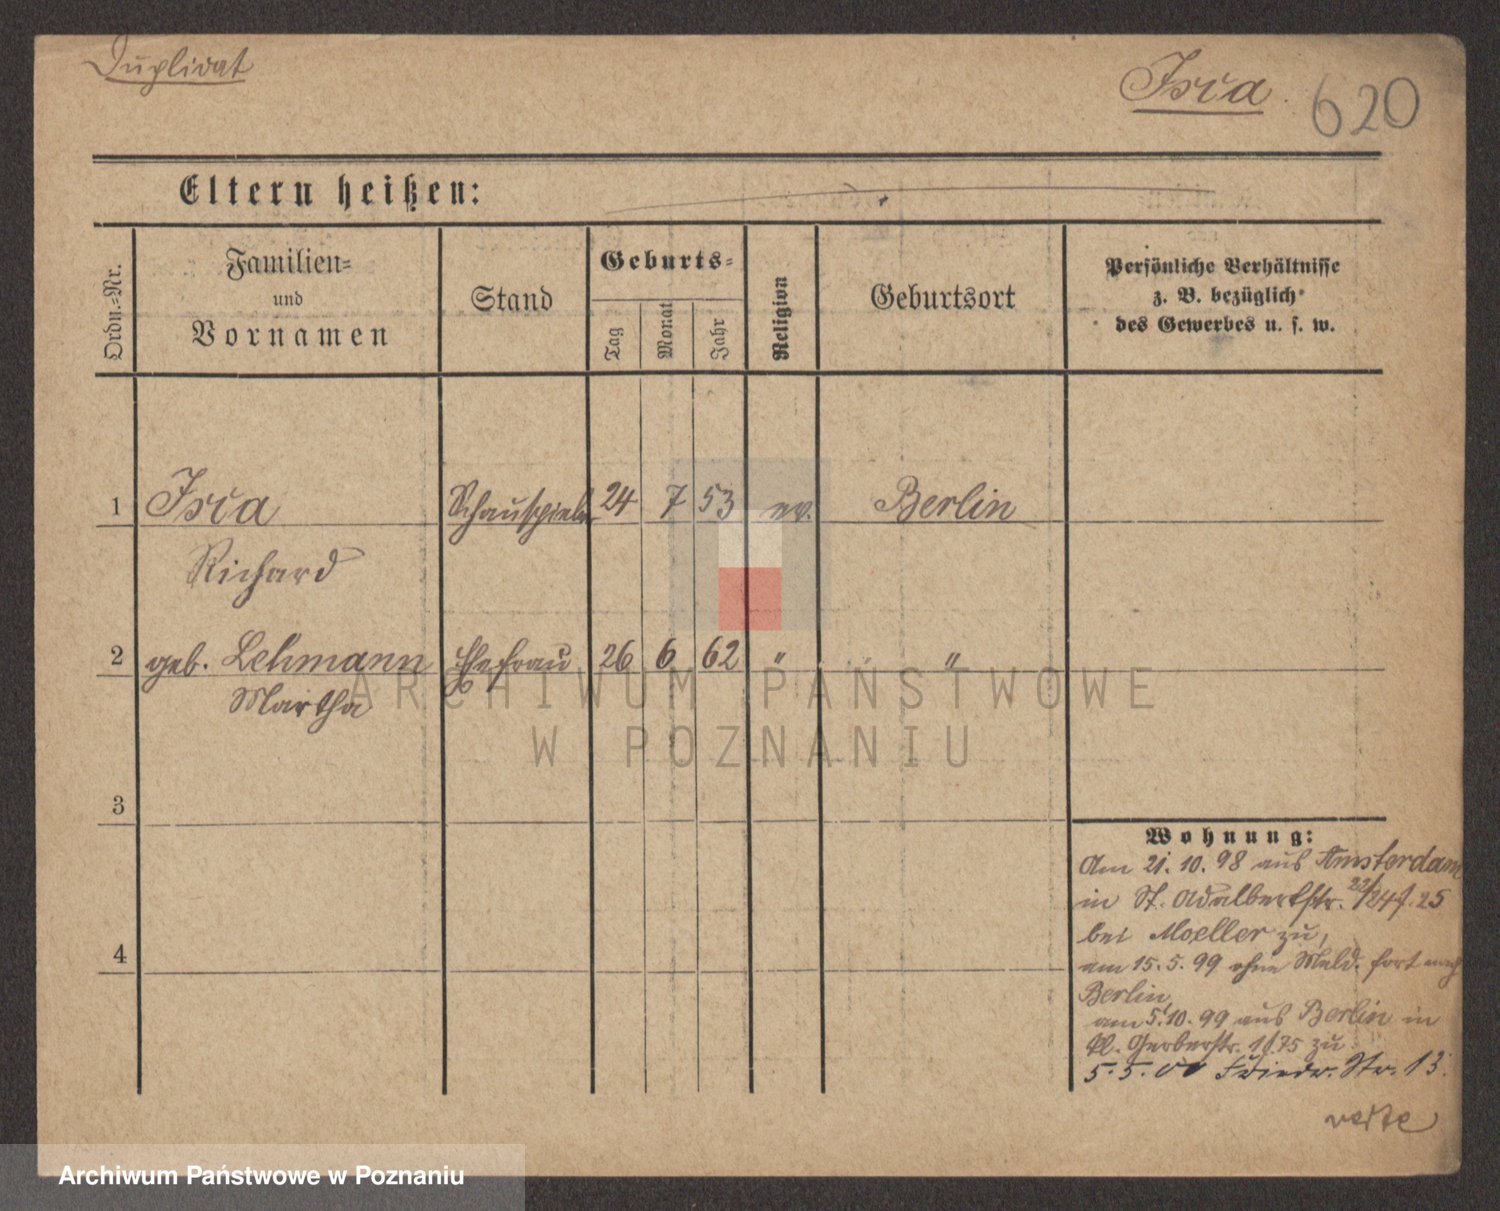 Duplicat
Isra
620
Eltern heißen:
Ordn.-Nr.
Familien-
und
Vornamen
Stand
Geburts-
Tag
Monat
Jahr
Religion
Geburtsort
Persönliche Verhältnisse
z. B. bezüglich
des Gewerbes u. s. w.
1 Isra Schauspieler 24 7 53 ev. Berlin
Richard
2 geb. Lehmann Ehefrau 26 6 62 " "
Martha
3
4
Wohnung:
Am 21. 10. 98 aus Amsterdam
in St. Adalbertstr. 25
bei Moeller zu,
am 15. 5. 99 ohne Meld. fort nach
Berlin,
am 5. 10. 99 aus Berlin in
Kl. Gerberstr. zu
5. 5. 00 Friedr. Str. 13.
ARCHIWUM PAŃSTWOWE
W POZNANIU
Archiwum Państwowe w Poznaniu